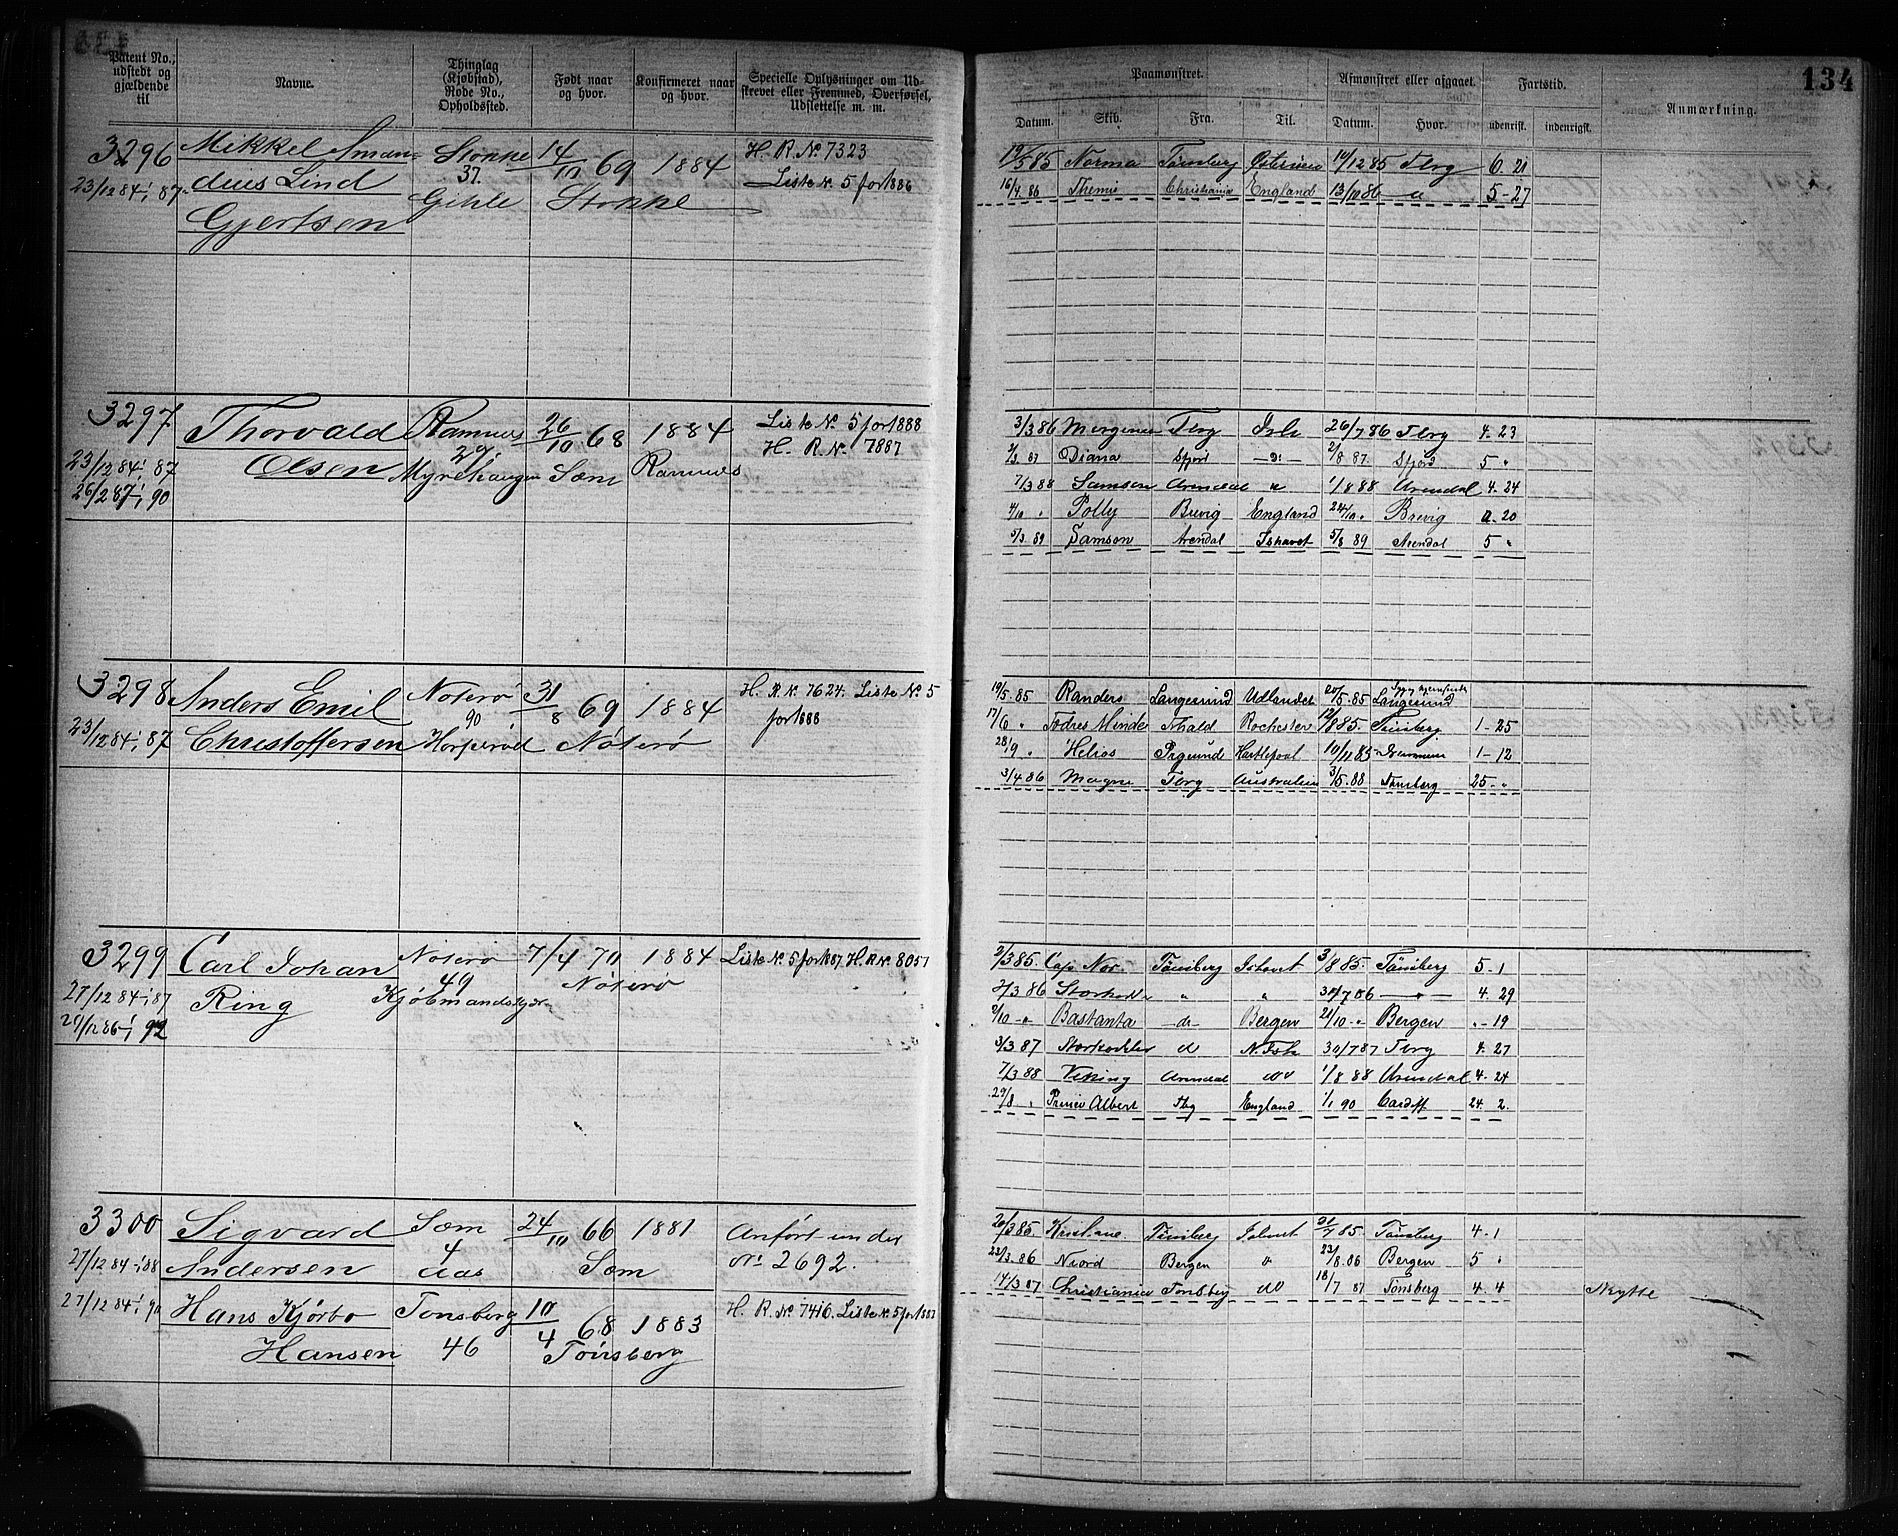 134
Patent No., udstedt og gjældende til
Navne.
Thinglag (Kjøbstad), Rode No., Opholdssted.
Født naar og hvor.
Konfirmeret naar og hvor.
Specielle Oplysninger om Udskrevet eller Fremmed, Overførsel, Udslettelse m. m.
Paamønstret.
Afmønstret eller afgaaet.
Fartstid.
Anmærkning.
Datum. Skib. Fra. Til. Datum. Hvor. udenrigst. indenrigst.
3296 Mikkel Aman- Stokke 14/11 69 1884 H. R. No 7323
23/12 84 - 87 deus Lind 37. Liste No 5 for 1886
Gjertsen Gihle Stokke
19/5 85 Norma Tønsberg Østersøen 14/12 85 Tbrg 6. 21
16/4 86 Themis Christiania England 13/10 86 " 5-27
3297 Thorvald Ramnes 26/10 68 1884 Liste No 5 for 1888
23/12 84 - 87 Olsen 29. Sæm Ramnes H. R. No. 7887
26/2 87 - 90 Myrehaugen
3/3 86 Tbrg Ish. 26/7 86 Tbrg 4. 23
2/3 87 Diana Sfjord - do - 2/8 87. Sfjord 5 "
7/3 88 Samson Arendal " 1/8 88 Arendal 4. 24
4/10 " Polly Brevig England 24/10 " Brevig 0. 20
5/3 89 Samson Arendal Ishavet 5/8 89 Arendal 5 "
3298 Anders Emil Nøterø 31/8 69 1884 H. R. No 7624. Liste No 5
23/12 84 - 87 Christoffersen 90 Nøterø for 1888
Horperød
19/5 85 Randers Langesund Udlandet 20/5 85 Langesund
17/6 " Rochester 12/8 85. Tønsberg 1-25
28/9 " Helios Prgrund Hartlepool 19/11 85 1-12
3/4 86 Magne Tbrg Australien 3/5. 88 Tønsberg 25. "
3299 Carl Johan Nøterø 7/4 70 1884 Liste No 5 for 1887. H. R. No 8051
27/12 84 - 87 Ring 49 Nøterø
29/12 86 - 92 Kjøbmandskjær
2/3 85. Cap Nor. Tønsberg Ishavet 3/8 85. Tønsberg 5. 1
2/3 86 " " 30/7 86 - " - 4. 29
9/10 - " Bastanta - do - Bergen 21/10 - " Bergen " - 19
3/3 87 do N. Ish. 30/7 87 Tbrg 4. 27
7/3 88 Viking Arendal do 1/8 88 Arendal 4. 24
29/8 " Prince Albert Tbg England 1/1 90 Cardiff 24. 2.
3300 Sigvard Sæm 24/10 66 1881 Anført under
27/12 84 - 88 Andersen 4 Sæm No 2692.
Aas
27/12 84 - 90 Hans Kjørbo Tønsberg 10/4 68 1883 H. R. No 7416. Liste No 5 for 1887
Hansen 46 Tønsberg
20/3 85 Kristiane Tønsberg Ishavet 31/7 85. Tønsberg 4. 1
23/3. 86 Niord Bergen " 23/8. 86 Bergen 5 "
14/3 87 Christiania Tønsberg do 18/7 87 Tønsberg 4. 4